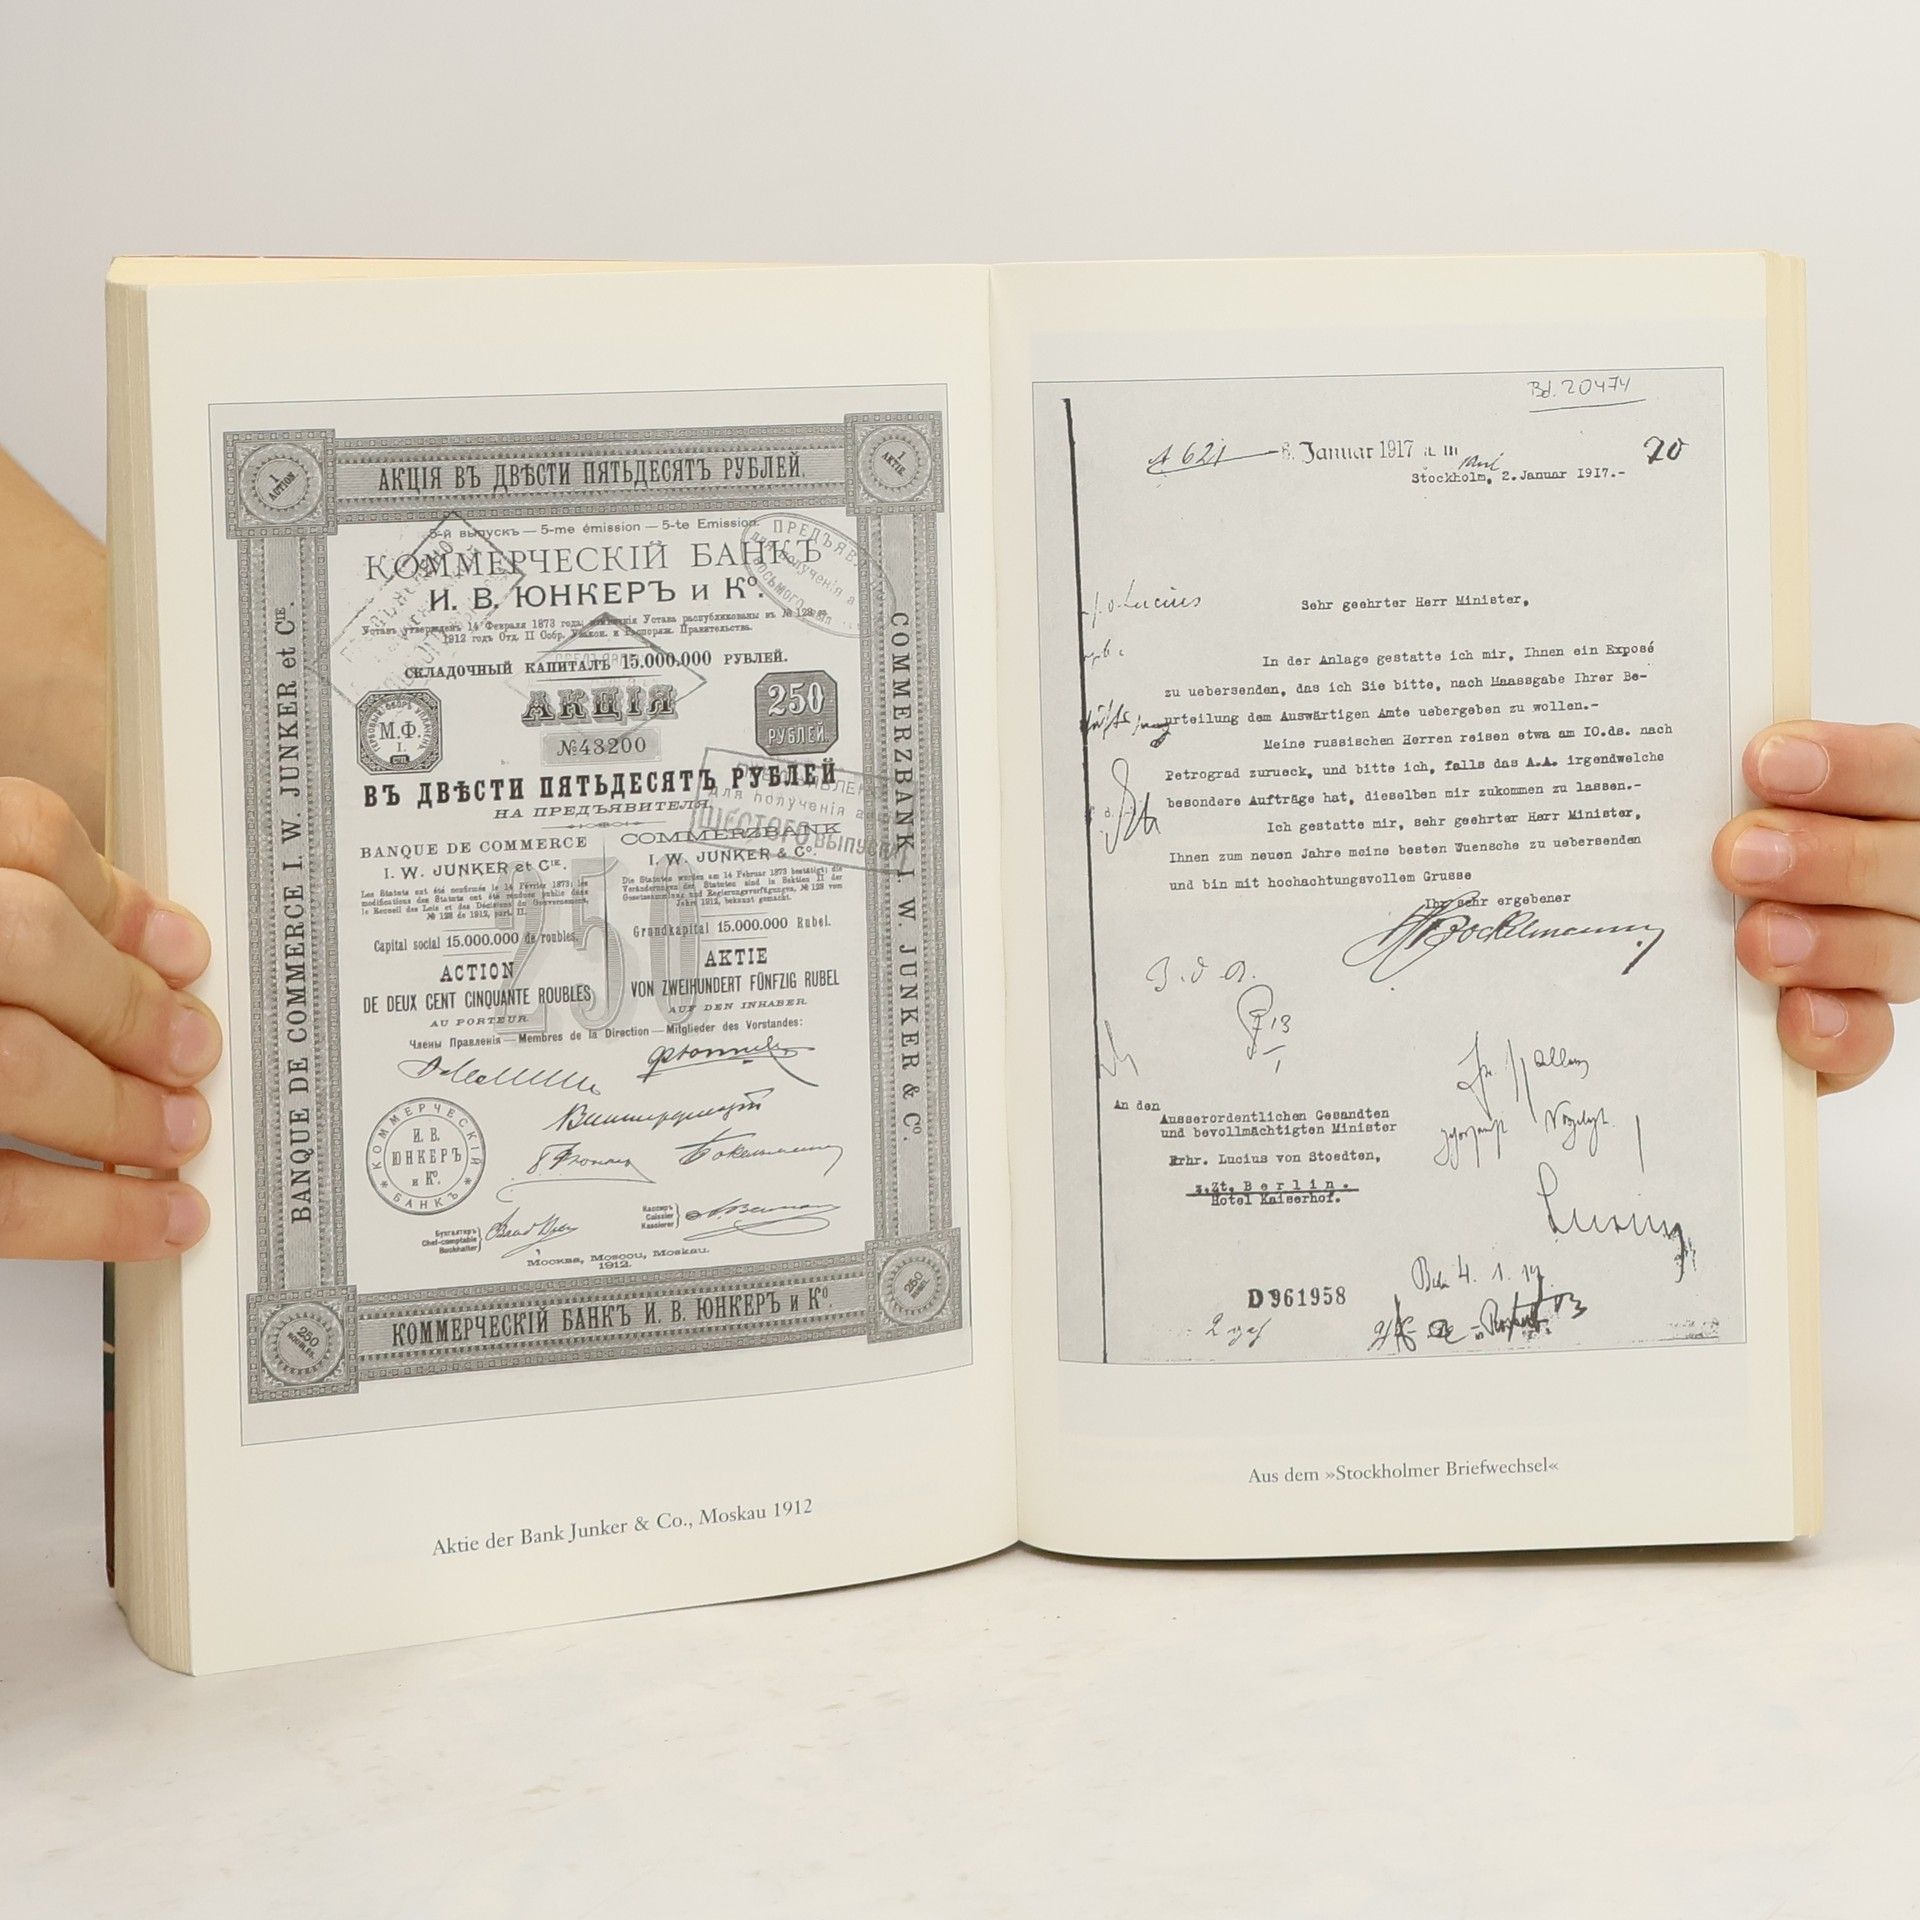 1
ACTION.
АКЦІЯ ВЪ ДВѢСТИ ПЯТЬДЕСЯТЪ РУБЛЕЙ.
1
AKTIE.
5-й выпускъ — 5-me émission — 5-te Emission.
КОММЕРЧЕСКІЙ БАНКЪ
И. В. ЮНКЕРЪ и Ко.
Уставъ утвержденъ 14 Февраля 1873 года; измѣненія Устава распубликованы въ № 128
1912 годъ Отд. II Собр. Узакон. и Распоряж. Правительства.
СКЛАДОЧНЫЙ КАПИТАЛЪ 15.000.000 РУБЛЕЙ.
АКЦІЯ
М.Ф.
I.
250
РУБЛЕЙ.
№43200
ВЪ ДВѢСТИ ПЯТЬДЕСЯТЪ РУБЛЕЙ
НА ПРЕДЪЯВИТЕЛЯ.
для полученія
ШЕСТОГО ВЫПУСКА
BANQUE DE COMMERCE
I. W. JUNKER et CIE.
Les Statuts ont été confirmés le 14 Février 1873; les
modifications des Statuts ont été rendues public dans
le Recueil des Lois et des Décisions du Gouvernement,
№ 128 de 1912, part. II.
Capital social 15.000.000 de roubles.
ACTION
DE DEUX CENT CINQUANTE ROUBLES
AU PORTEUR
COMMERZBANK
I. W. JUNKER & Co.
Die Statuten wurden am 14 Februar 1873 bestätigt; die
Veränderungen der Statuten sind in Sektion II der
Gesetzsammlung und Regierungsverfügungen, № 128 vom
Jahre 1912, bekannt gemacht.
Grundkapital 15.000.000 Rubel.
AKTIE
VON ZWEIHUNDERT FÜNFZIG RUBEL
AUF DEN INHABER.
250
Члены Правленія — Membres de la Direction — Mitglieder des Vorstandes:
КОММЕРЧЕСКІЙ
И. В.
ЮНКЕРЪ
и Ко.
* БАНКЪ *
Бухгалтеръ
Chef-comptable
Buchhalter
Кассиръ
Caissier
Kassierer
Москва, Moscou, Moskau.
1912.
BANQUE DE COMMERCE I. W. JUNKER et CIE.
COMMERZBANK I. W. JUNKER & Co.
250
ROUBLES.
КОММЕРЧЕСКІЙ БАНКЪ И. В. ЮНКЕРЪ и Ко.
250
RUBEL.
Aktie der Bank Junker & Co., Moskau 1912
Bd. 20474
A 621 6. Januar 1917
70
Stockholm, 2. Januar 1917.-
Lucius
Sehr geehrter Herr Minister,
In der Anlage gestatte ich mir, Ihnen ein Exposé
zu uebersenden, das ich Sie bitte, nach Maassgabe Ihrer Be-
urteilung dem Auswärtigen Amte uebergeben zu wollen.-
Meine russischen Herren reisen etwa am 10.ds. nach
Petrograd zurueck, und bitte ich, falls das A.A. irgendwelche
besondere Aufträge hat, dieselben mir zukommen zu lassen.-
Ich gestatte mir, sehr geehrter Herr Minister,
Ihnen zum neuen Jahre meine besten Wuensche zu uebersenden
und bin mit hochachtungsvollem Grusse
Ihr sehr ergebener
Bockelmann
An den
Ausserordentlichen Gesandten
und bevollmächtigten Minister
Frhr. Lucius von Stoedten,
z.Zt. Berlin.
Hotel Kaiserhof.
D 961958
Aus dem »Stockholmer Briefwechsel«